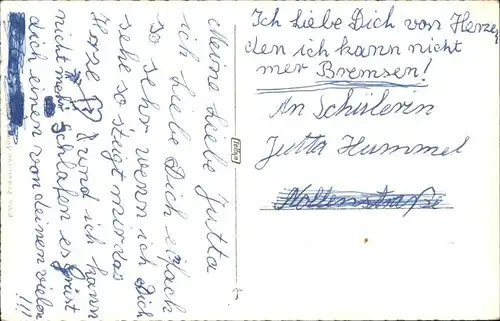 Meine liebe Jutta
ich liebe Dich einfach
so sehr wenn ich Dich
sehe so steigt mir das
Herze und ich kann
nicht mehr schlafen es grüst
dich einen von deinen vielen
!!!
Ich liebe Dich von Herze,
den ich kann nicht
mer Bremsen!
An Schülerin
Jutta Hummel